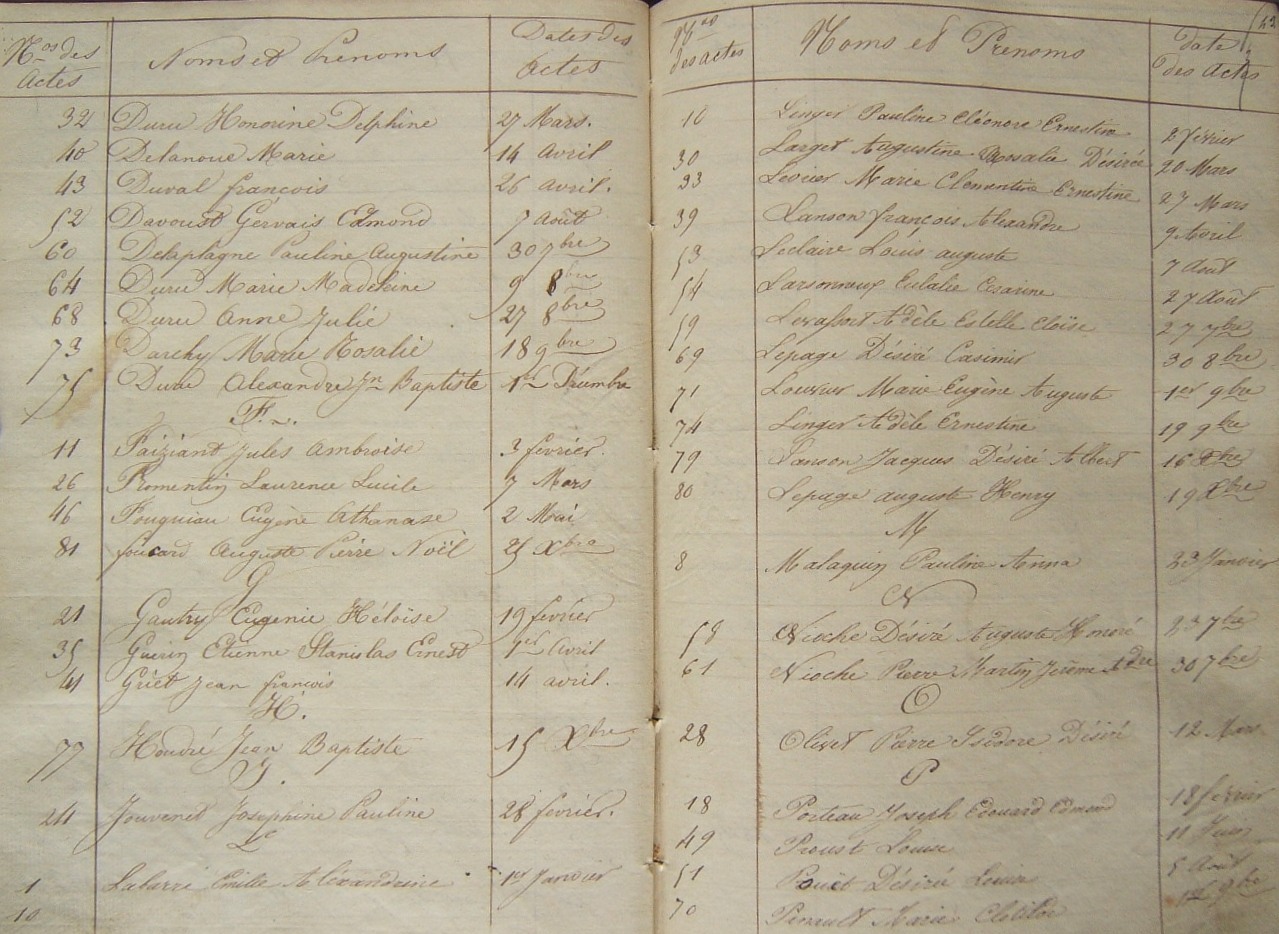 Nos des Actes Noms et Prenoms Dates des Actes
32 Duru Honorine Delphine 27 Mars.
40 Delanoue Marie 14 Avril
43 Duval françois 26 Avril.
52 Davoust Gervais Edmond 7 Août
60 Delaplagne Pauline Augustine 30 7bre
64 Duru Marie Madeleine 9 8bre
68 Duru Anne Julie 27 8bre
73 Darchy Marie Rosalie 18 9bre
75 Duru Alexandre Jn Baptiste 1er Décembre
F.
11 Faiziant Jules Ambroise 3 février.
26 Fromentin Laurence Lucile 7 Mars
46 Fouquiau Eugène Athanase 2 Mai
81 foucard Auguste Pierre Noël 25 Xbre
G
21 Gautry Eugenie Héloise 19 fevrier
35 Guerin Etienne Stanislas Ernest 1er Avril
41 Griet Jean francois 14 avril.
H.
77 Houdré Jean Baptiste 15 Xbre
J.
24 Jouvenet Josephine Pauline 28 fevrier.
L
1 Lalarré Emilie Aléxandrine 1er Janvier
10
Nos des actes Noms et Prenoms date des Actes
10 Linger Pauline Eléonore Ernestine 2 février
30 Larget Augustine Rosalie Désirée 20 Mars
33 Marie Clementine Ernestine 27 Mars
39 Lanson françois Alexandre 9 Avril
53 Leclaire Louis auguste 7 Août
54 Larsonneux Eulalie Cesarine 27 Août
59 Levassort Adèle Estelle Eloïse 27 7bre
69 Lepage Désiré Casimir 30 8bre
71 Marie Eugène Auguste 1er 9bre
74 Linger Adèle Ernestine 19 9bre
79 Lanson Jacques Désiré Albert 16 Xbre
80 Lepage auguste Henry 19 Xbre
M
8 Malaquin Pauline Anna 23 Janvier
N
58 Nioche Désiré Auguste Honoré 23 7bre
61 Nioche Pierre Martin Jérème Adre 30 7bre
O
28 Olivet Pierre Isidore Désiré 12 Mars
P
18 Porteau Joseph Edouard Edmond 18 fevrier
49 Proust Louise 11 Juin
51 Désiré Louis 5 Août
70 Perrault Marie Clotilde 1er 9bre